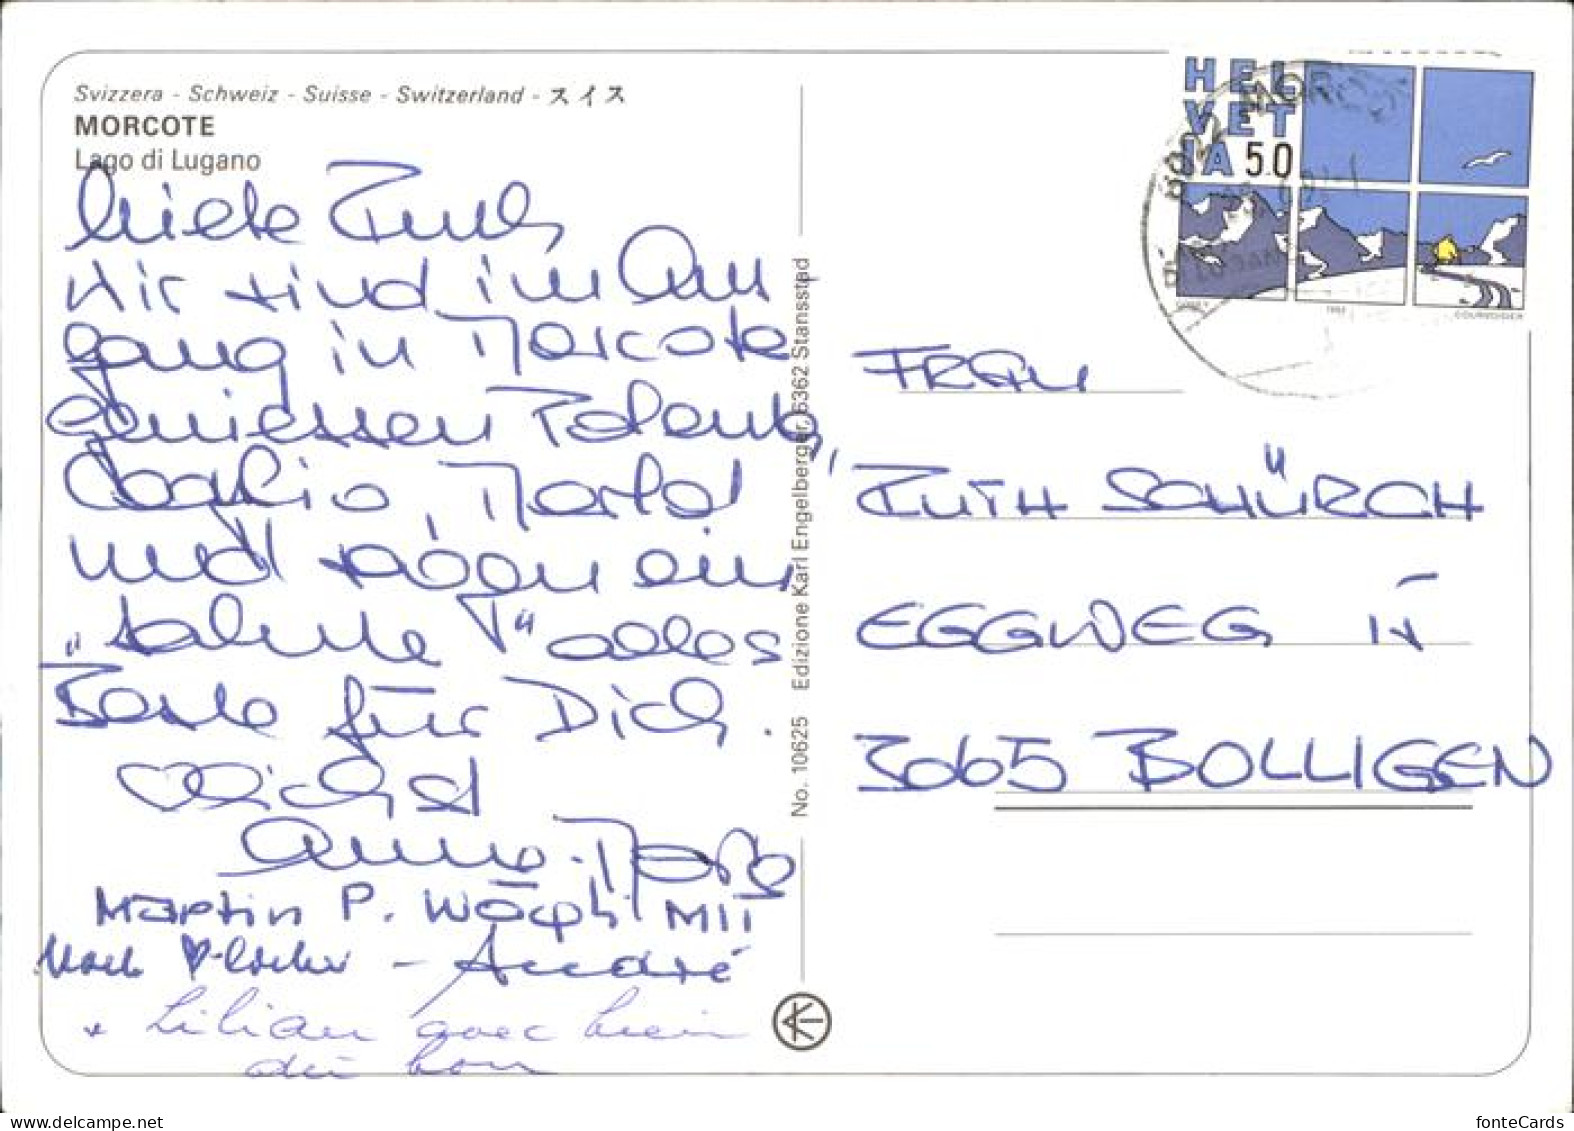 Svizzera - Schweiz - Suisse - Switzerland - スイス
MORCOTE
Lago di Lugano
Liebe Ruth
Wir sind im Aus
gang in Morcote
geniessen Polenta,
Coniglio, Merlot
und sagen ein
"salute" alles
Beste für Dich.
Herzlichst
Anna-
Martin P. Wägli MII
André
+ Lilian avec
No. 10625 Edizione Karl Engelberger, 6362 Stansstad
HEL
VET
IA 50
1993
COURVOISIER
FRAU
RUTH SCHÜRCH
EGGWEG 11
3065 BOLLIGEN
fonteCards